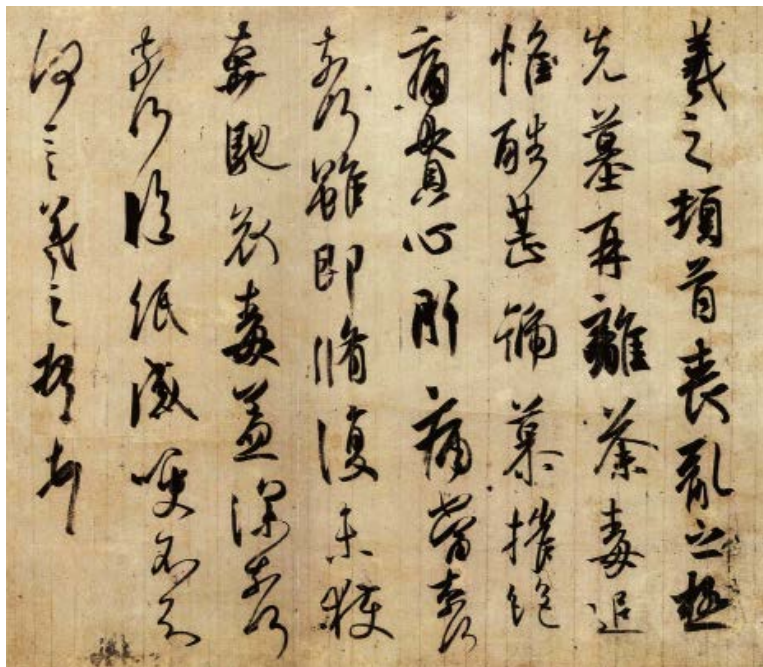 羲之頓首喪亂之極
先墓再離荼毒追
惟酷甚號慕摧絕
痛貫心肝痛當奈何
奈何雖即脩復未獲
奔馳哀毒益深奈何
奈何臨紙感哽不知
何言羲之頓首頓首